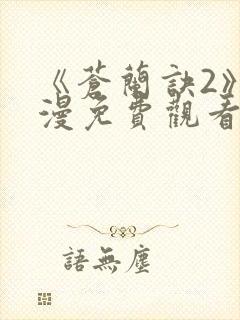 《蒼蘭訣2》
漫免費觀看
語無塵